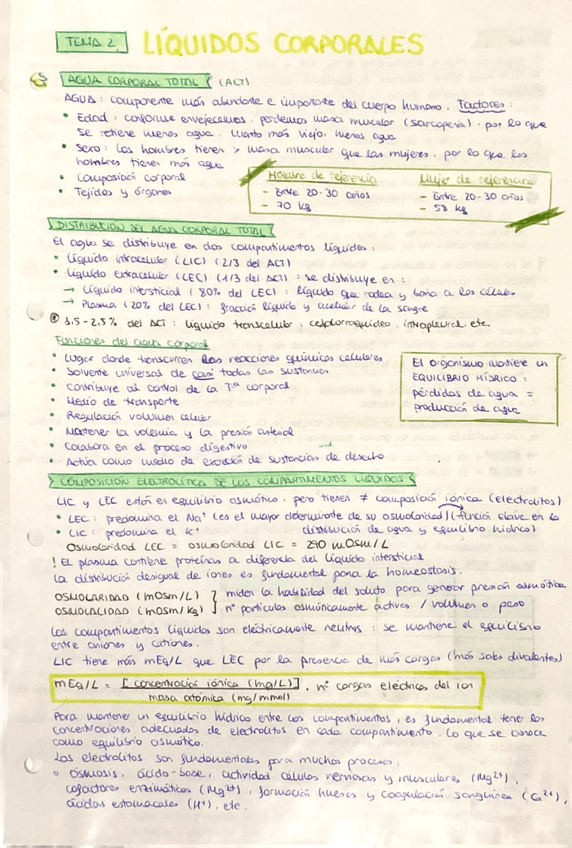 TEMA 2. LÍQUIDOS CORPORALES
AGUA CORPORAL TOTAL (ACT)
AGUA: componente más abundante e importante del cuerpo humano. Factores:
• Edad: conforme envejecemos, perdemos masa muscular (sarcopenia), por lo que
se retiene menos agua. Cuanto más viejo, menos agua
• Sexo: los hombres tienen > masa muscular que las mujeres, por lo que los
hombres tienen más agua
• Composición corporal
• Tejidos y órganos
Hombre de referencia
- Entre 20-30 años
- 70 kg
Mujer de referencia
- Entre 20-30 años
- 58 kg
DISTRIBUCIÓN DEL AGUA CORPORAL TOTAL
El agua se distribuye en dos compartimentos líquidos:
• Líquido intracelular (LIC) (2/3 del ACT)
• Líquido extracelular (LEC) (1/3 del ACT): se distribuye en:
→ Líquido intersticial (80% del LEC): líquido que rodea y baña a las células
→ Plasma (20% del LEC): fracción líquida y acelular de la sangre
1.5-2.5% del ACT: líquido transcelular, cefalorraquídeo, intrapleural, etc.
Funciones del agua corporal
• Lugar donde transcurren las reacciones químicas celulares
• Solvente universal de casi todas las sustancias
• Contribuye al control de la Tª corporal
• Medio de transporte
• Regulación volumen celular
• Mantener la volemia y la presión arterial
• Colabora en el proceso digestivo
• Actúa como medio de excreción de sustancias de desecho
El organismo mantiene un
EQUILIBRIO HÍDRICO:
pérdidas de agua =
producción de agua
COMPOSICIÓN ELECTROLÍTICA DE LOS COMPARTIMENTOS LÍQUIDOS
LIC y LEC están es equilibrio osmótico, pero tienen ≠ composición iónica (electrolitos)
• LEC: predomina el Na⁺ (es el mayor determinante de su osmolaridad) (función clave en la
• LIC: predomina el K⁺ distribución de agua y equilibrio hídrico)
Osmolaridad LEC = osmolaridad LIC = 290 mOsm/L
! El plasma contiene proteínas a diferencia del líquido intersticial
La distribución desigual de iones es fundamental para la homeostasis.
OSMOLARIDAD (mOsm/L) ] miden la habilidad del soluto para generar presión osmótica
OSMOLALIDAD (mOsm/kg) ] nº partículas osmóticamente activas / volumen o peso
Los compartimentos líquidos son eléctricamente neutros: se mantiene el equilibrio
entre aniones y cationes.
LIC tiene más mEq/L que LEC por la presencia de más cargas (más sales divalentes)
mEq/L = [concentración iónica (mg/L)] . nº cargas eléctricas del ion
masa atómica (mg/mmol)
Para mantener un equilibrio hídrico entre los compartimentos, es fundamental tener las
concentraciones adecuadas de electrolitos en cada compartimento, lo que se conoce
como equilibrio osmótico.
Los electrolitos son fundamentales para muchos procesos:
◦ Osmosis, ácido-base, actividad células nerviosas y musculares (Mg²⁺),
cofactores enzimáticos (Mg²⁺), formación huesos y coagulación sanguínea (Ca²⁺),
ácidos estomacales (H⁺), etc.